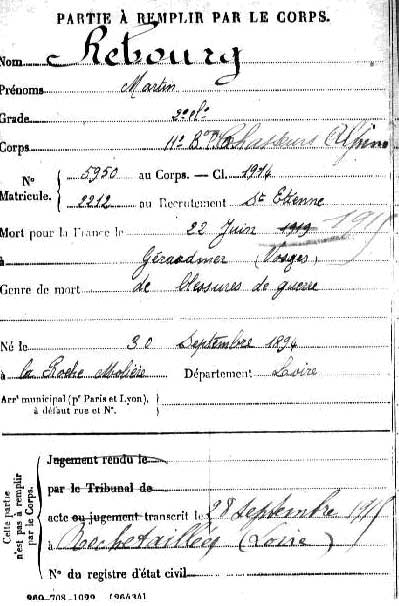 PARTIE À REMPLIR PAR LE CORPS.
Nom Rebourg
Prénoms Martin
Grade 2e cl.
Corps 11e Bon Chasseurs Alpins
No Matricule. 5950 au Corps. — Cl. 1914
2212 au Recrutement St Etienne
Mort pour la France le 22 Juin 1919 1915
à Gérardmer (Vosges)
Genre de mort de blessures de guerre
Né le 30 Septembre 1894
à la Roche Molière Département Loire
Arrt municipal (pr Paris et Lyon),
à défaut rue et No.
Cette partie n'est pas à remplir par le Corps.
Jugement rendu le
par le Tribunal de
acte ou jugement transcrit le 28 septembre 1915
à Rochetaillée (Loire)
No du registre d'état civil